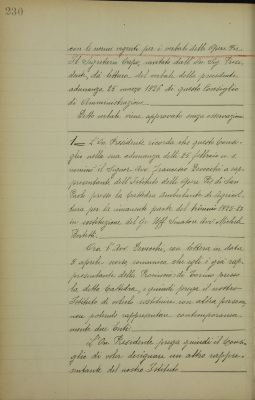 230
con le norme vigenti per i verbali delle Opere Pie.
Il Segretario Capo, invitato dall'On. Sig. Presi-
dente, dà lettura del verbale della precedente
adunanza 26 marzo 1925 di questo Consiglio
di Amministrazione.
Detto verbale viene approvato senza osservazioni.
1 = L'On. Presidente ricorda che questo Consi-
glio nella sua adunanza delli 26 febbraio u. s.
nominò il Signor Avv. Francesco a rap-
presentante dell'Istituto delle Opere Pie di San
Paolo presso la Cattedra Ambulante di Agricol-
tura per la rimanente parte del
in sostituzione del Gr. Uff. Senatore Avv.
Ora l'Avv. con lettera in data
aprile comunica che egli è già rap-
presentante della Provincia di Torino presso
la detta Cattedra, e quindi prega il nostro
Istituto di volerlo sostituire con altra persona,
non potendo rappresentare contemporanea-
mente due Enti.
L'On. Presidente prega quindi il Consi-
glio di voler designare un altro rappre-
sentante del nostro Istituto